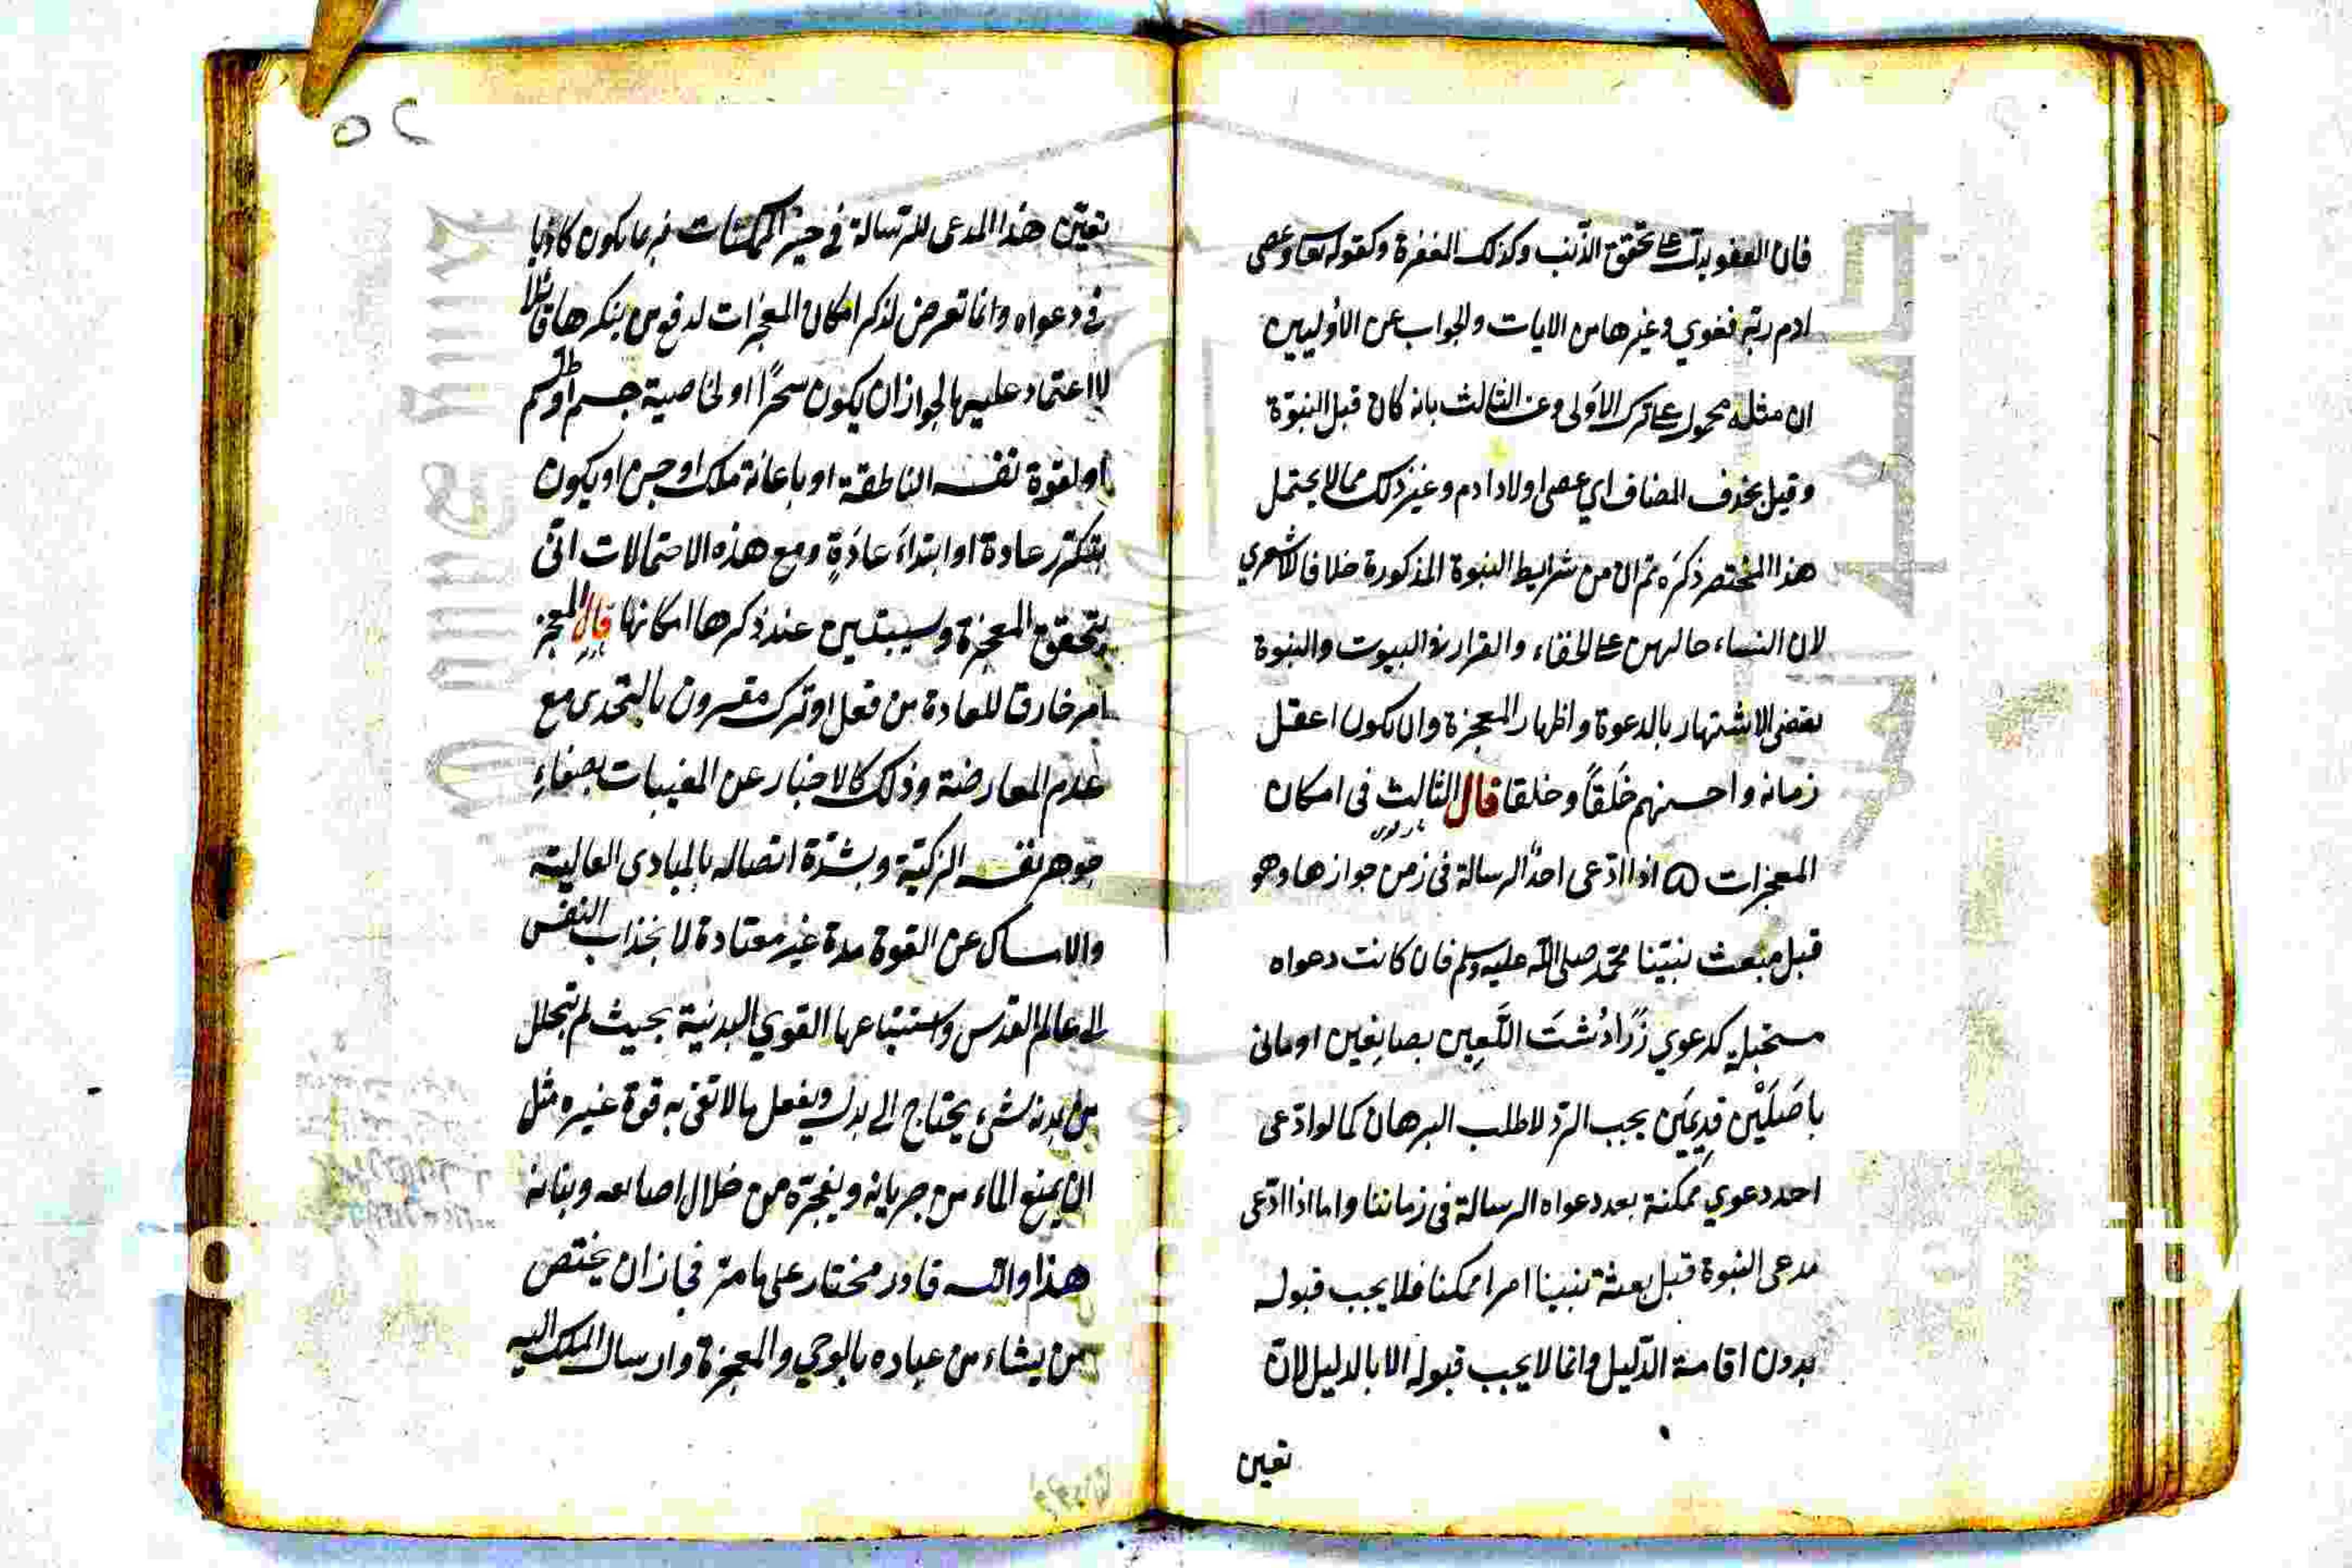 فان العفو يدل على تحقق الذنب وكذلك المغفرة وكقوله تعا وعصى
ادم ربه فغوي وغيرها من الايات والجواب عن الاوليين
ان مثله محمول على ترك الاولى وعن الثالث بانه كان قبل النبوة
وقيل بحذف المضاف اي عصى اولاد ادم وغير ذلك مما لا يحتمل
هذا المختصر ذكره ثم ان من شرايط النبوة المذكورة خلافا للاشعري
لان النساء حالهن على الخفاء والقرار في البيوت والنبوة
يقتضى الاشتهار بالدعوة واظهار المعجزة وان يكون اعقل
زمانه واحسنهم خَلقًا وخلقا قال الثالث فى امكان
المعجزات ۵ اذا ادّعى احدٌ الرسالة فى زمن جوازها وهو
قبل مبعث نبيّنا محمّد صلى الله عليه وسلم فان كانت دعواه
مستحيلة كدعوي زَرَادُشتَ اللَّعِين بصانِعَين او مانى
باصلَيْن قدِيمَين يجب الردّ لا طلب البرهان كما لو ادّعى
احد دعوي ممكنة بعد دعواه الرسالة فى زماننا واما اذا ادّعى
مدعى النبوة قبل بعثة نبينا امرا ممكنا فلا يجب قبوله
بدون اقامة الدّليل وانما لا يجب قبوله الا بالدليل لان
تعين
٥٢
تعيّن هذا المدعى للرّسالة في حيز الممكنات فربما يكون كاذبا
في دعواه وانما تعرض لذكر امكان المعجزات لدفع من ينكرها قائلا
لا اعتماد عليها لجواز ان يكون سحرًا او لخاصية جسم او طلسم
او لقوة نفسه الناطقة او باعانة ملك او جن او يكون
بتكرر عادة او ابتداءَ عادةٍ ومع هذه الاحتمالات انّى
يتحقق المعجزة وسيبتين عند ذكرها امكانها قال المعجز
امر خارق للعادة من فعل او ترك مقرون بالتحدى مع
عدم المعارضة وذلك كالاخبار عن المغيبات بصفاءِ
جوهر نفسه الزكيّة وبشدّة اتصاله بالمبادى العالية
والامساك عن القوة مدة غير معتادة لانجذاب النفس
الى عالم القدس واستتباعها القوي البدنية بحيث لم يتحلل
من بدنه شيء يحتاج الى بدل ويفعل ما لا تفى به قوة غيره مثل
ان يمنع الماء من جريانه ويفجّره من خلال اصابعه وبنانه
هذا والله قادر مختار على ما مرّ فجاز ان يختص
من يشاء من عباده بالوحي والمعجزة وارسال الملك اليه